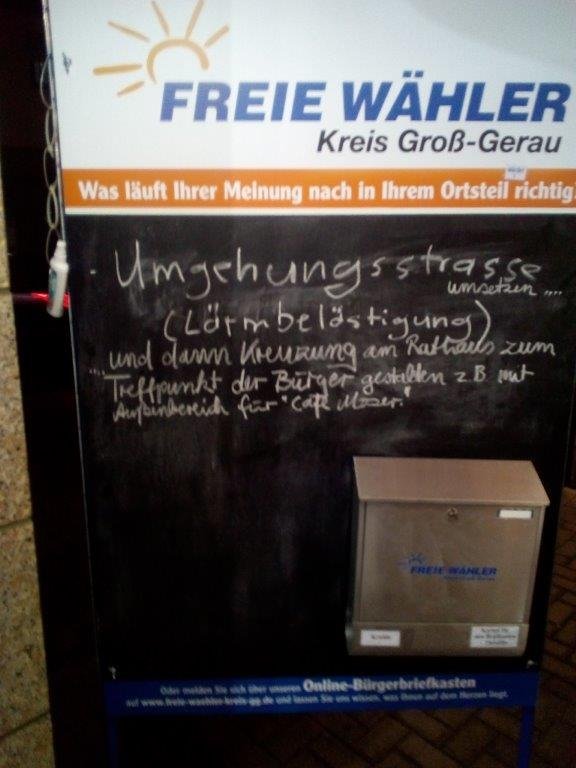 FREIE WÄHLER
Kreis Groß-Gerau
Was läuft Ihrer Meinung nach in Ihrem Ortsteil richtig,
- Umgehungsstrasse
umsetzen ....
(Lärmbelästigung)
... und dann Kreuzung am Rathaus zum
Treffpunkt der Bürger gestalten z.B. mit
Außenbereich für "Café Moser."
FREIE WÄHLER
Kreide
Oder melden Sie sich über unseren Online-Bürgerbriefkasten
auf www.freie-waehler-kreis-gg.de und lassen Sie uns wissen, was Ihnen auf dem Herzen liegt.